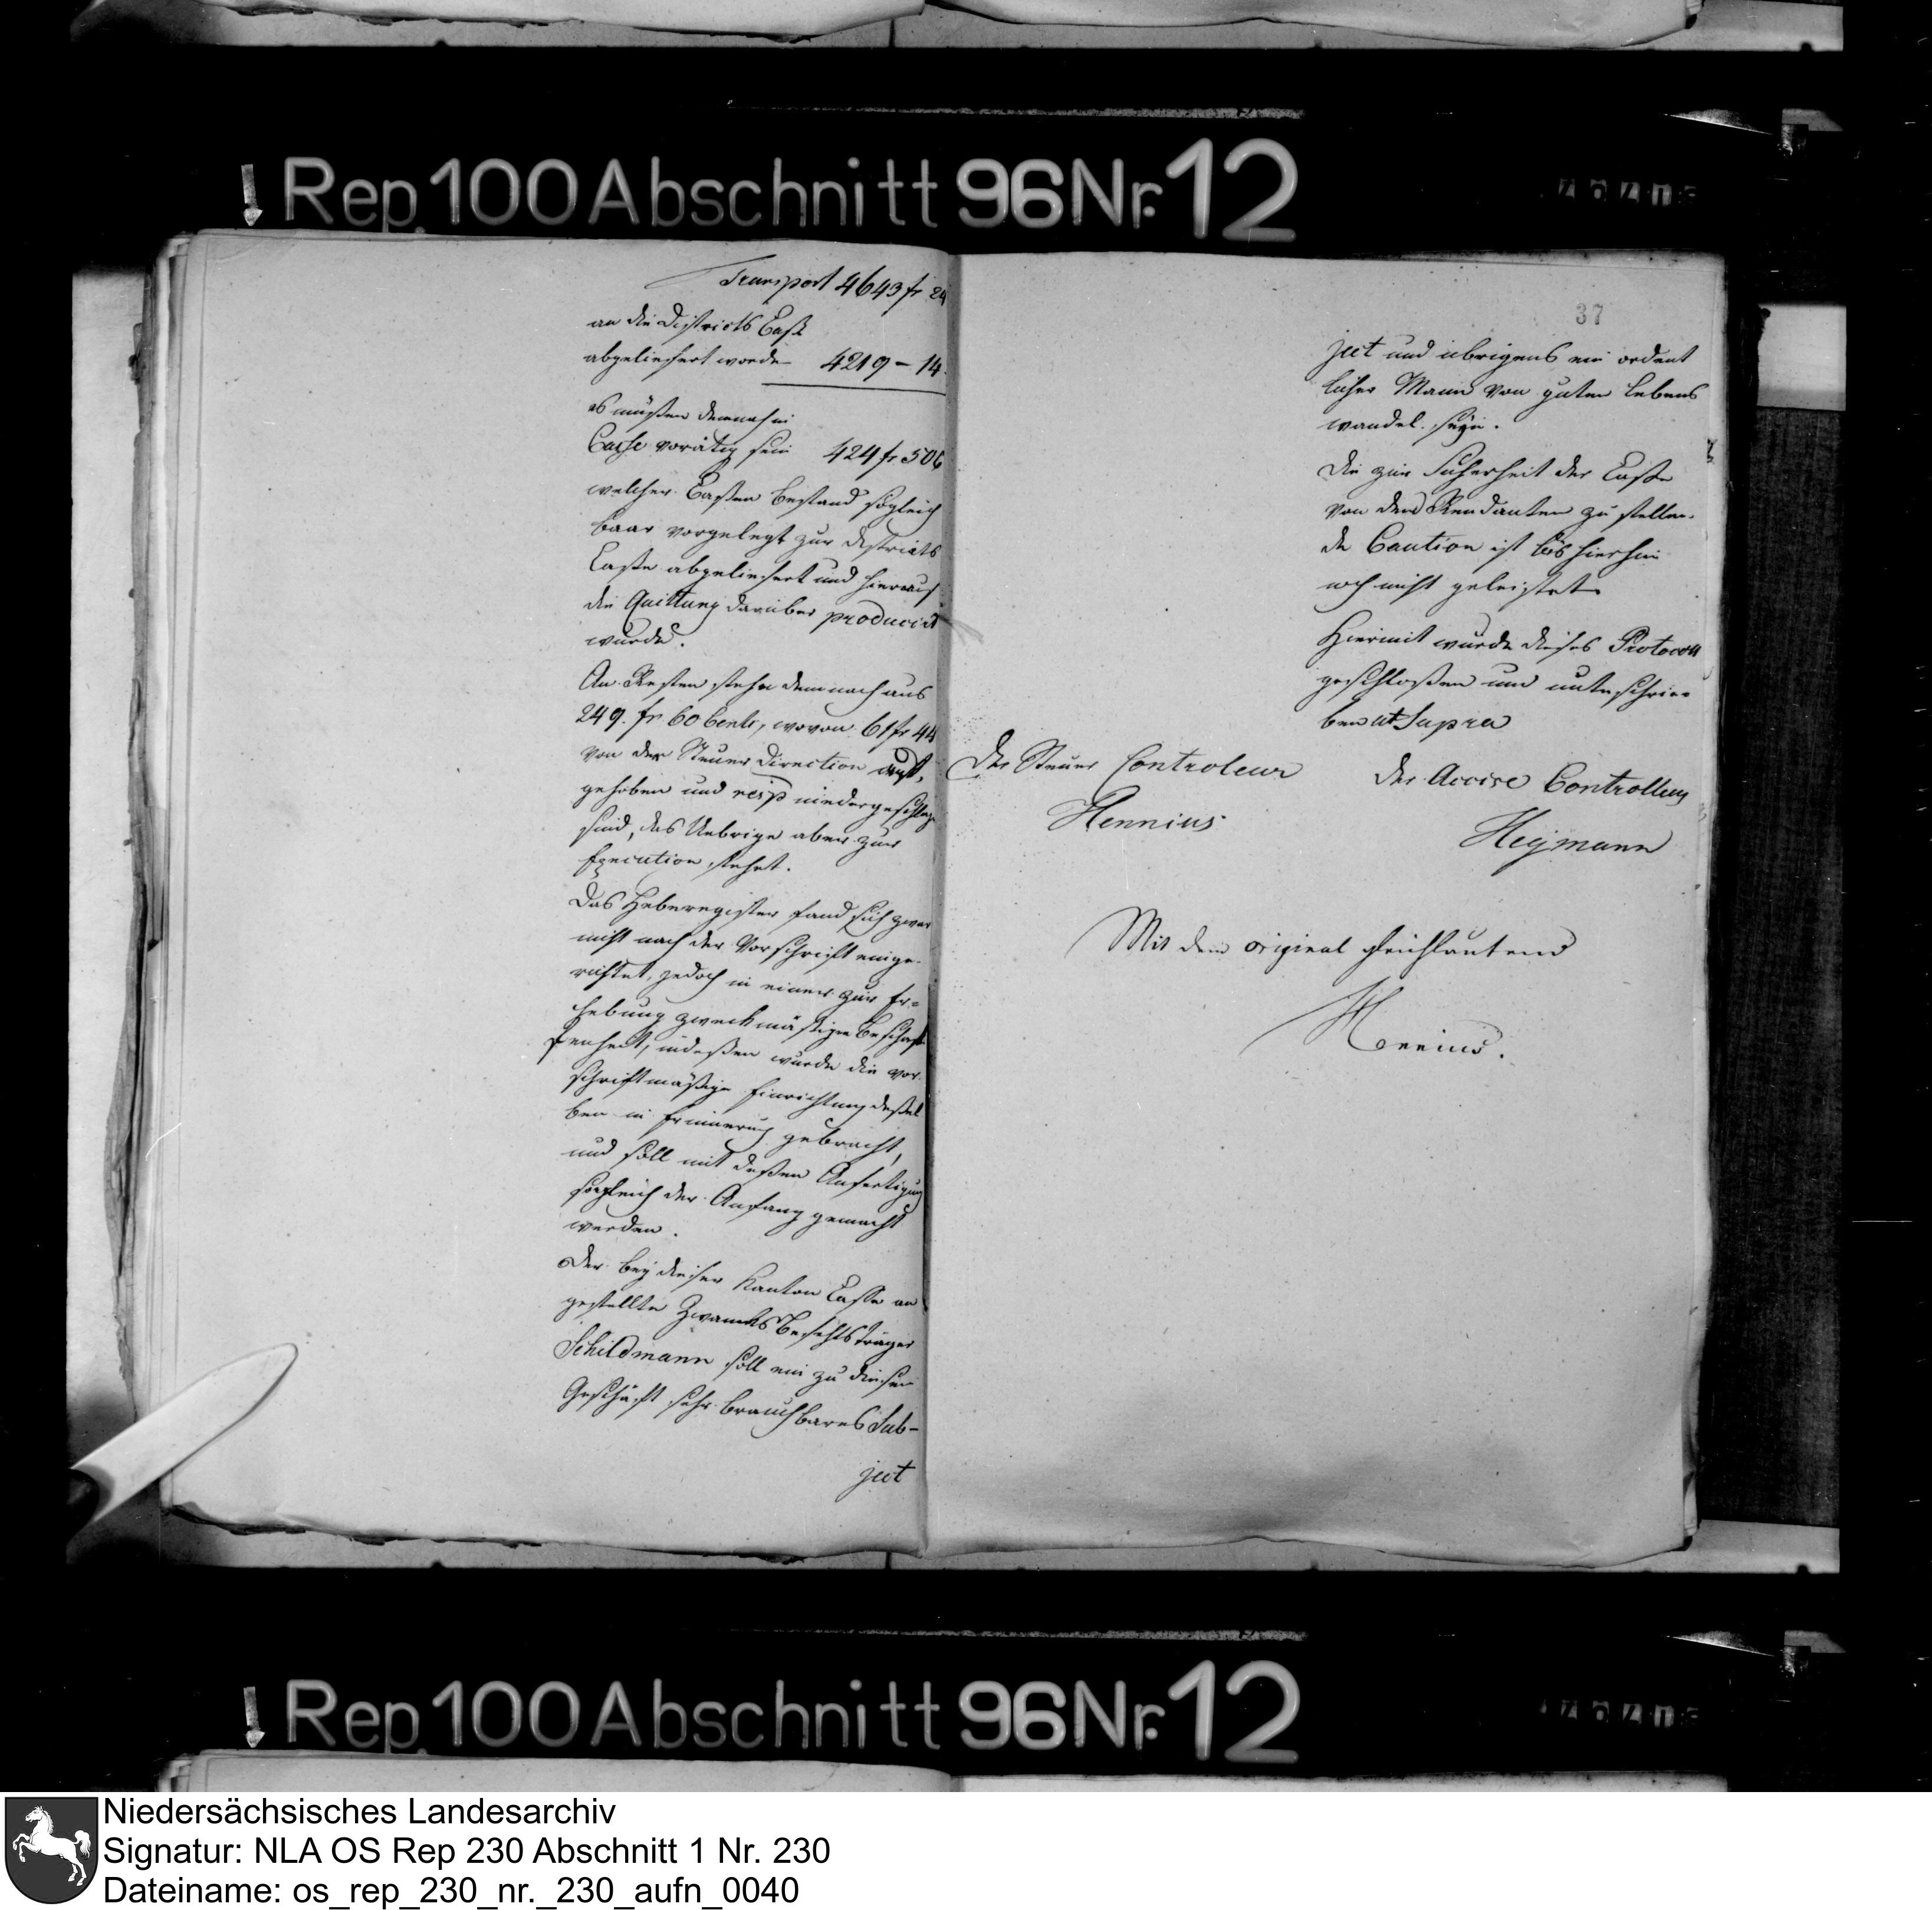 Rep. 100 Abschnitt 96 Nr. 12
Transport 4643 fr 24
an die Districts Casse
abgeliefert worde 4219 – 14
es müßen demnach in
Casse vorätig sein 424 fr 50 C
welcher Cassen Bestand sogleich
baar vorgelegt zur Districts
Casse abgeliefert und hierauf
die Quittung darüber producirt
wurde.
An Resten stehn demnach aus
249. fr 60 Cents, wovon 61 fr 44
von der Steuer Direction auf,
gehoben und resp niedergeschlag
sind, das Uebrige aber zur
Execution stehet.
Das Heberegister fand sich zwar
nicht nach der Vorschrift einge-
richtet, jedoch in einer zur Er=
hebung zweckmäßigen Beschaf
fenheit, indeßen wurde die vor
schriftmäßige Einrichtung deßel
ben in Erinnerung gebracht,
und soll mit deßen Anfertigung
sogleich der Anfang gemacht
werden.
Der bey dieser Kanton Casse an
gestellte Zwancks Befehlsträger
Schildmann soll ein zu diesem
Geschäft sehr brauchbares Sub-
ject
37
ject und übrigens ein ordent
licher Mann von guten Lebens
wandel seyn.
Die zur Sicherheit der Casse
von dem Rendanten zu stellen-
de Caution ist bis hierhin
noch nicht geleistet
Hiermit wurde dieses Protocoll
geschloßen und unterschrie-
ben ut Supra
Der Steuer Controleur
Hennius
Der Accise Controlleur
Heymann
Mit dem original gleichlautend
Hennius.
Rep. 100 Abschnitt 96 Nr. 12
Niedersächsisches Landesarchiv
Signatur: NLA OS Rep 230 Abschnitt 1 Nr. 230
Dateiname: os_rep_230_nr._230_aufn_0040